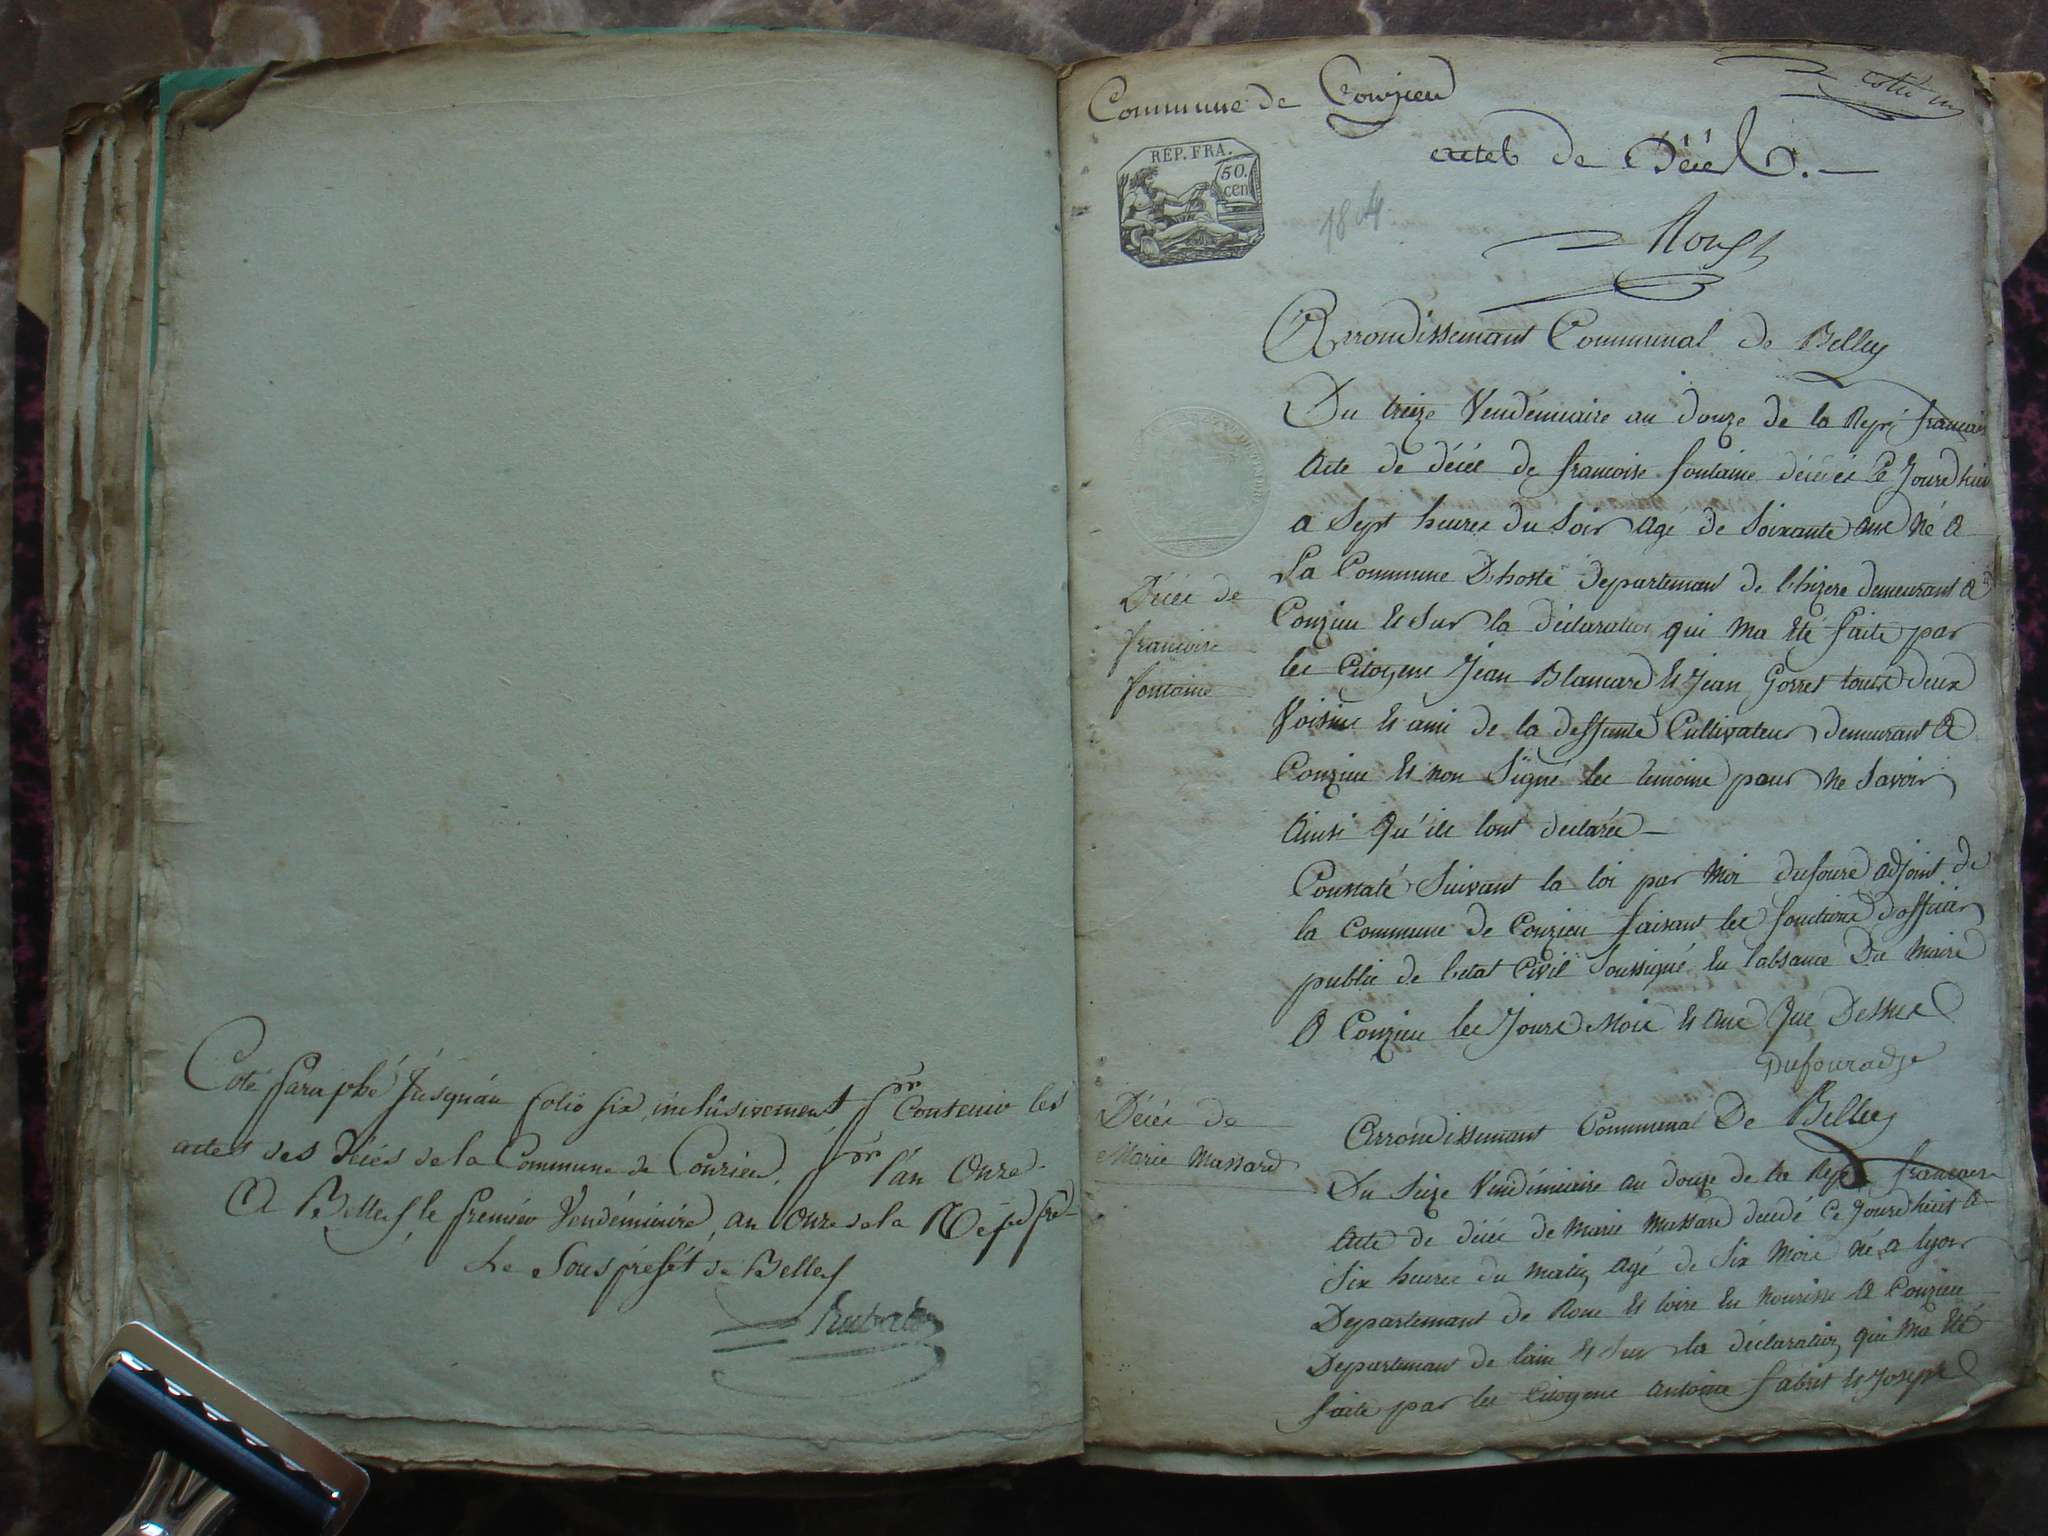 Coté paraphé jusqu'au folio six, inclusivement pr Contenir les
actes des décès de la Commune de Conzieu, pr l'an Onze.
A Belley, le premier Vendémiaire, an Onze de la Rép. fse
Le Sous préfét de Belley
Commune de Conzieu
actes de Décès. —
REP. FRA.
50.
cen
1804
Arrondissemant Communal de Belley
Du treize Vendémiaire an douze de la Repu francais
Acte de décés de francoise fontaine décédés Ce Jourdhui
a Sept heures du Soir Agé de Soixante ans né a
La Commune Dhoste Departemant de Lhizere demeurant a
Conzieu Et Sur la déclaration qui ma Eté faite par
les Citoyens Jean Blancard Et Jean Gorret touts deux
Voisins Et ami de la deffunte Cultivateur demeurant a
Conzieu Et non Signé les temoins pour ne Savoir
Ainsi Qu'ils lont declarés —
Constaté Suivant la loi par Moi dufours adjoint de
la Commune de Conzieu faisant les fonctions d'officier
public de letat Civil Soussigné En l'absance Du Maire
A Conzieu les Jours Mois Et ans Que Dessus
Dufour adj
Décés de
francoise
fontaine
Décés de
Marie Massard
Arrondissemant Communal De Belley
Du Seize Vendémiaire an douze de la Rep francaise
Acte de décés de Marie Massard decedé Ce Jourdhuit a
Six heures du matin Agé de Six Mois né a Lyon
Departemant de Rone Et loire En nourisse A Conzieu
Departemant de lain Et Sur la déclaration qui Ma Eté
faite par les Citoyens Antoine fabret Et Joseph